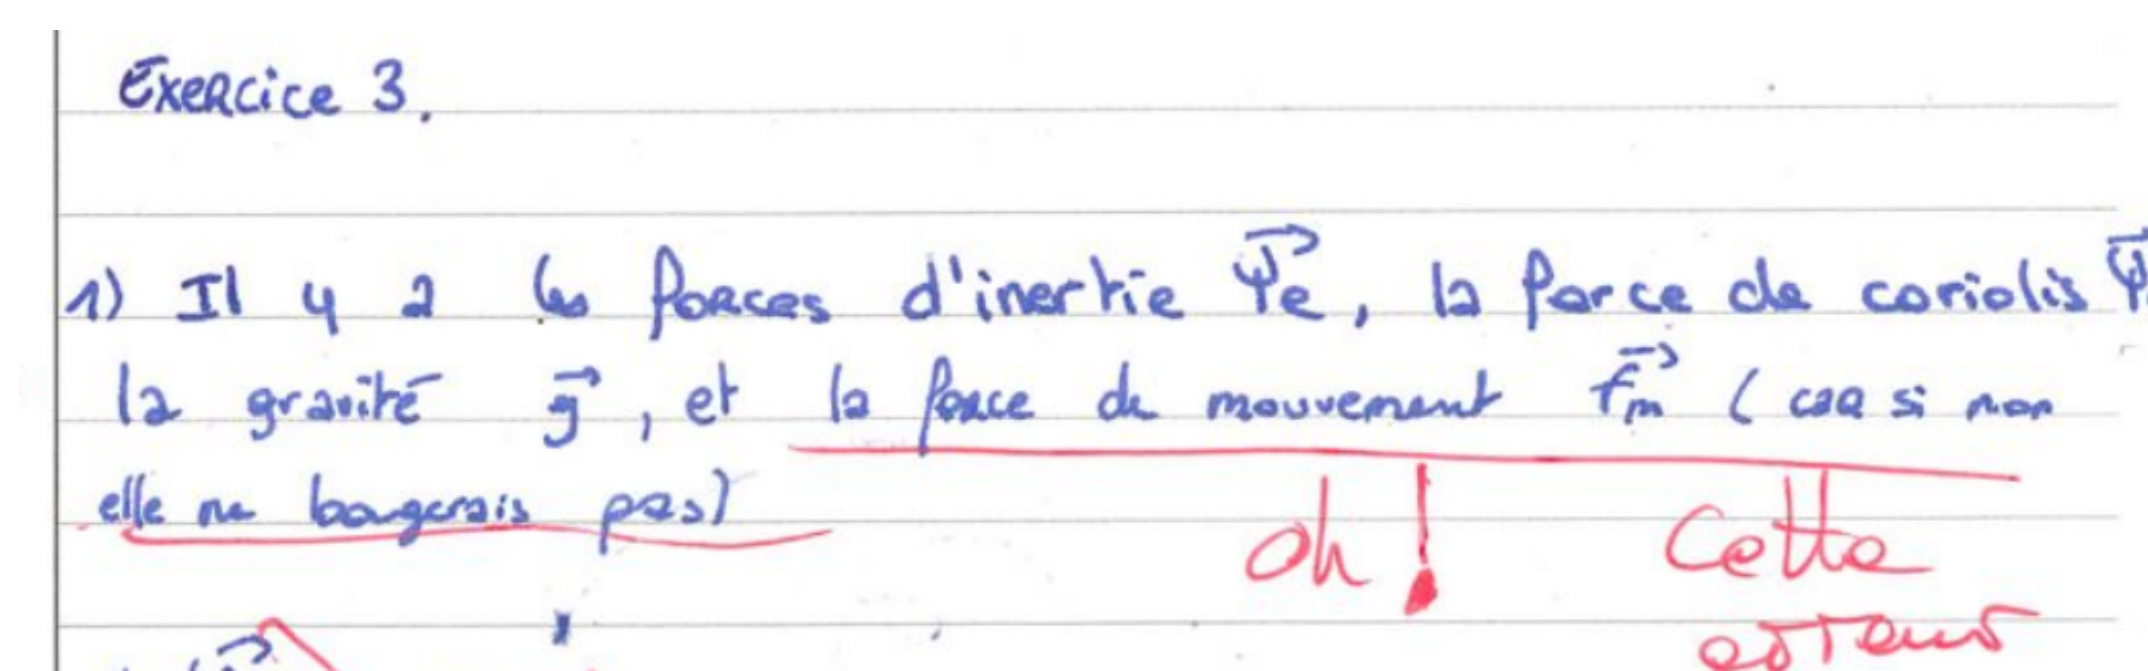 Exercice 3.
1) Il y a les forces d'inertie Ψe, la force de coriolis Ψ
la gravité g, et la force de mouvement Fm (car si non
elle ne bougerais pas)
oh ! Cette
erreur